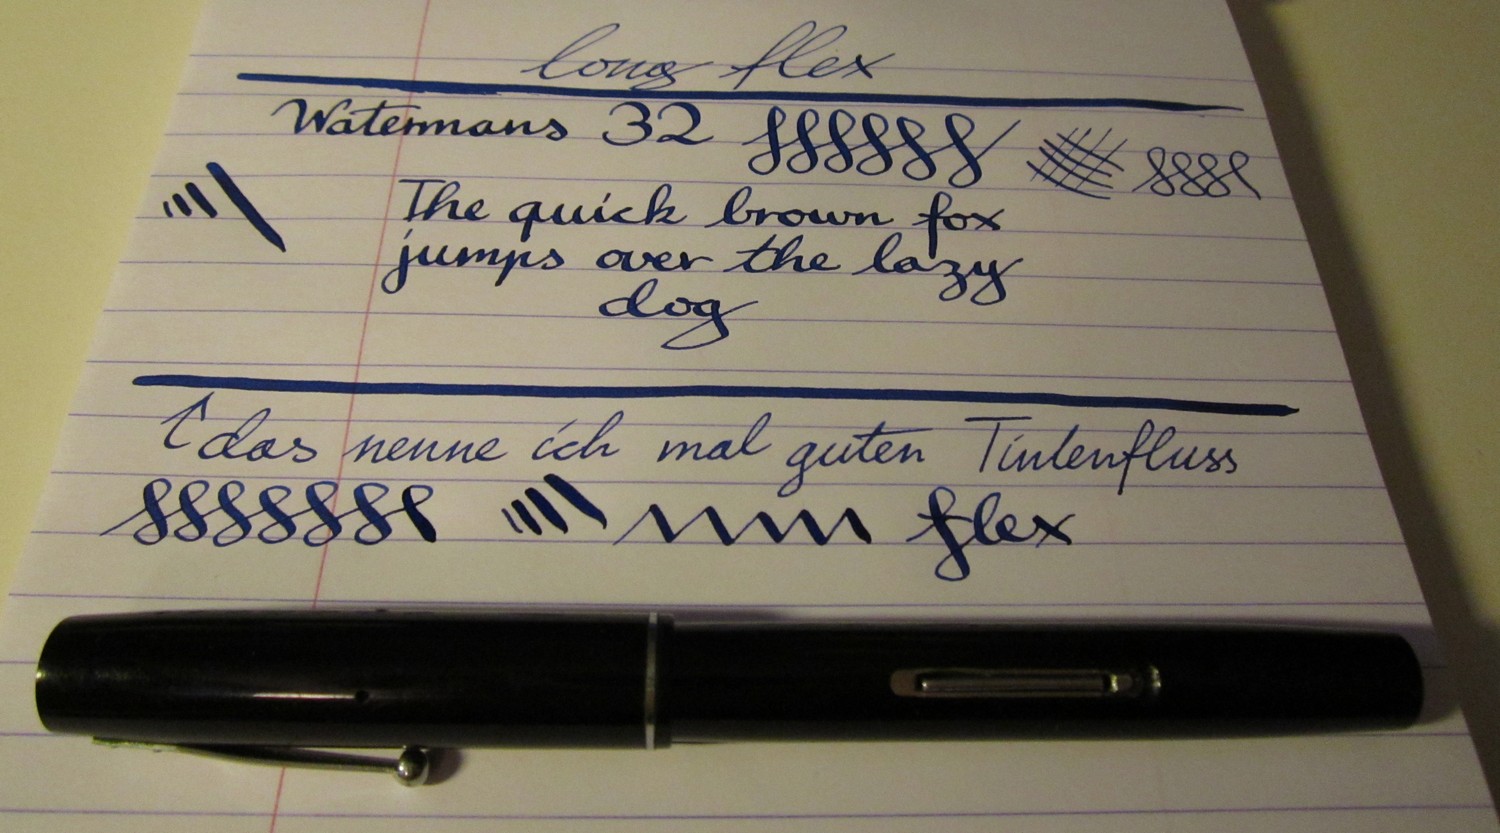 long flex
Watermans 32
The quick brown fox
jumps over the lazy
dog
↑ das nenne ich mal guten Tintenfluss
flex